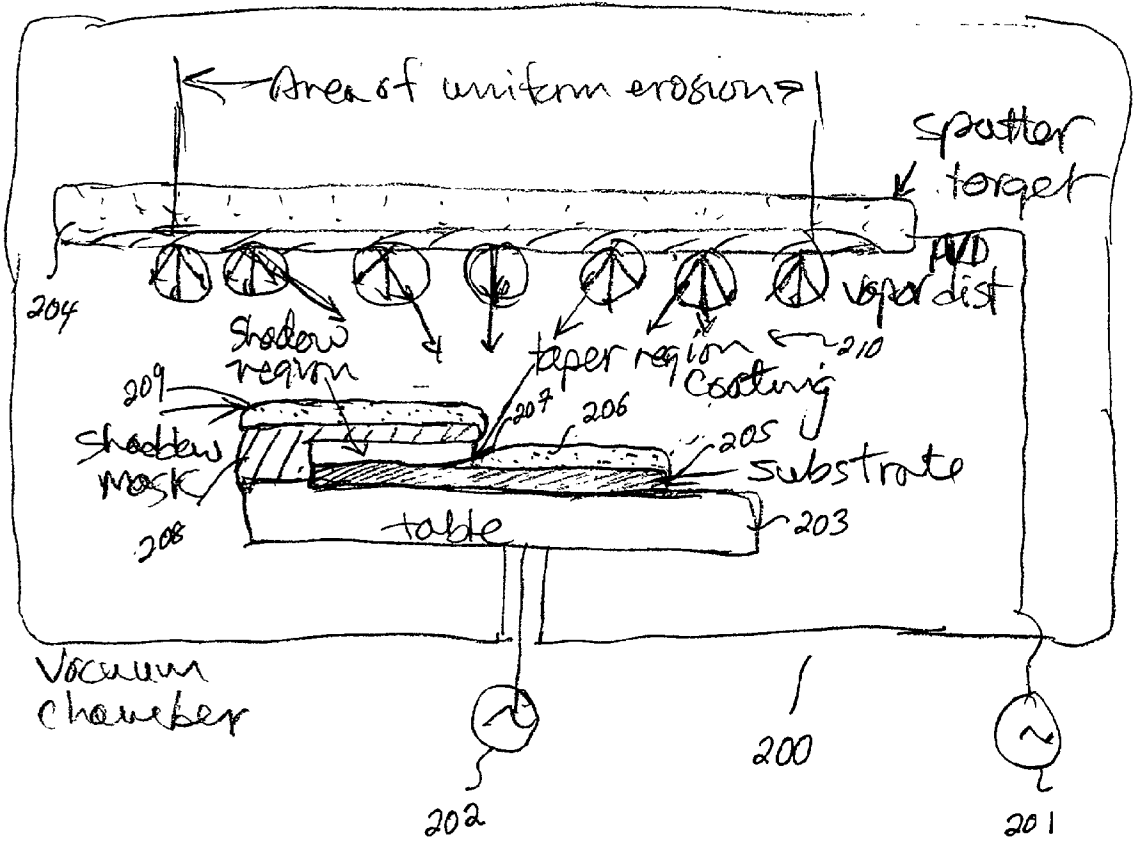 Area of uniform erosion
Sputter
target
204
PVD
vapor dist
Shadow
region
taper region
210
coating
209
207
206
205
Shadow
mask
substrate
208
table
203
Vacuum
chamber
200
202
201